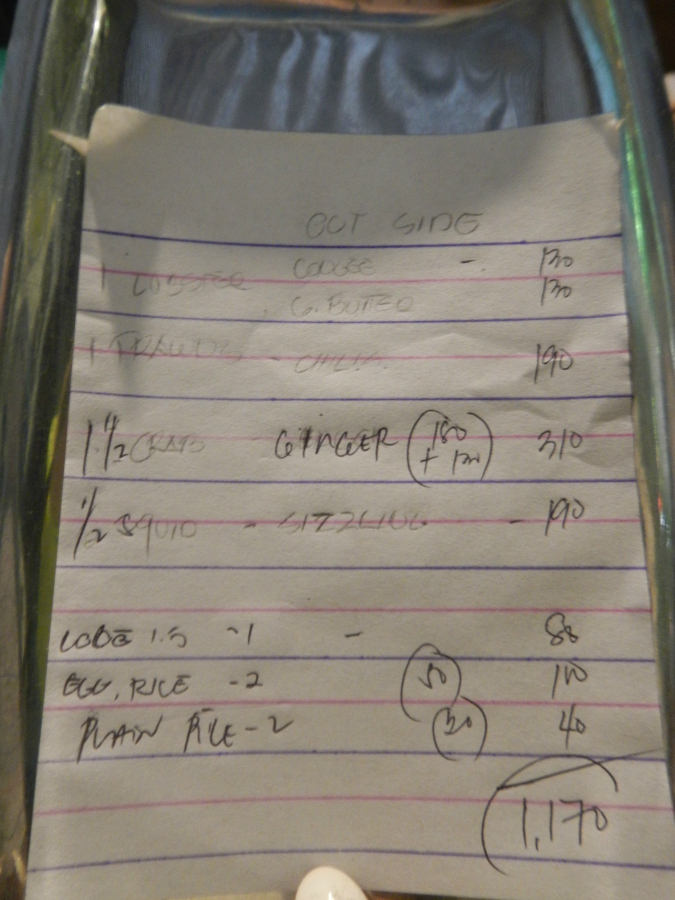 OUT SIDE
1 LOBSTER - 130
G. BUTTER 130
1 PRAWNS - 190
1 1/2 CRAB GINGER (180 + 130) 310
1/2 SQUID - SIZZLING - 190
1.5 - 1 - 80
EGG. RICE - 2 50 100
PLAIN RICE - 2 20 40
1,170